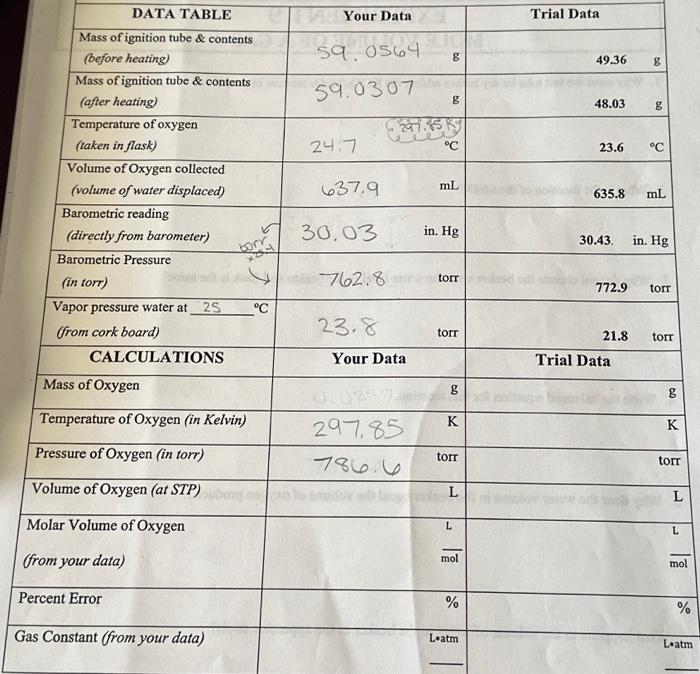 DATA TABLE Your Data Trial Data
Mass of ignition tube & contents
(before heating) 59.0564 g 49.36 g
Mass of ignition tube & contents
(after heating) 59.0307 g 48.03 g
Temperature of oxygen 297.85 K
(taken in flask) 24.7 °C 23.6 °C
Volume of Oxygen collected
(volume of water displaced) 637.9 mL 635.8 mL
Barometric reading
(directly from barometer) 30.03 in. Hg 30.43. in. Hg
torr
x25.4
Barometric Pressure
(in torr) 762.8 torr 772.9 torr
Vapor pressure water at 25 °C
(from cork board) 23.8 torr 21.8 torr
CALCULATIONS Your Data Trial Data
Mass of Oxygen 0.0257 g g
Temperature of Oxygen (in Kelvin) 297.85 K K
Pressure of Oxygen (in torr) 786.6 torr torr
Volume of Oxygen (at STP) L L
Molar Volume of Oxygen L L
(from your data) mol mol
Percent Error % %
Gas Constant (from your data) L•atm L•atm